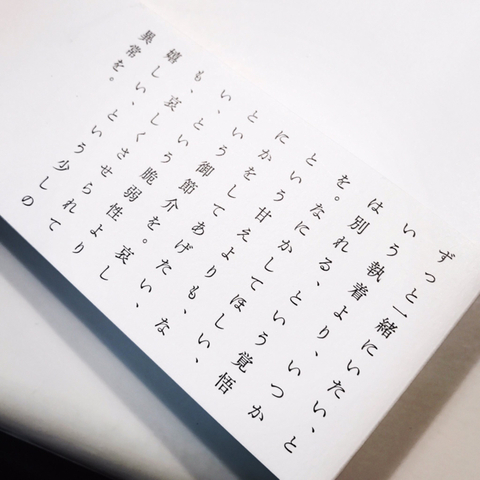 ずっと一緒にいたい、と
いう執着より、いつか
は別れる、という覚悟
を。なにかしてほしい、
という甘えよりも、な
にかをしてあげたい、
という御節介を。哀し
い、という脆弱性より
も、哀しくさせられて
嬉しい、という少しの
異常を。